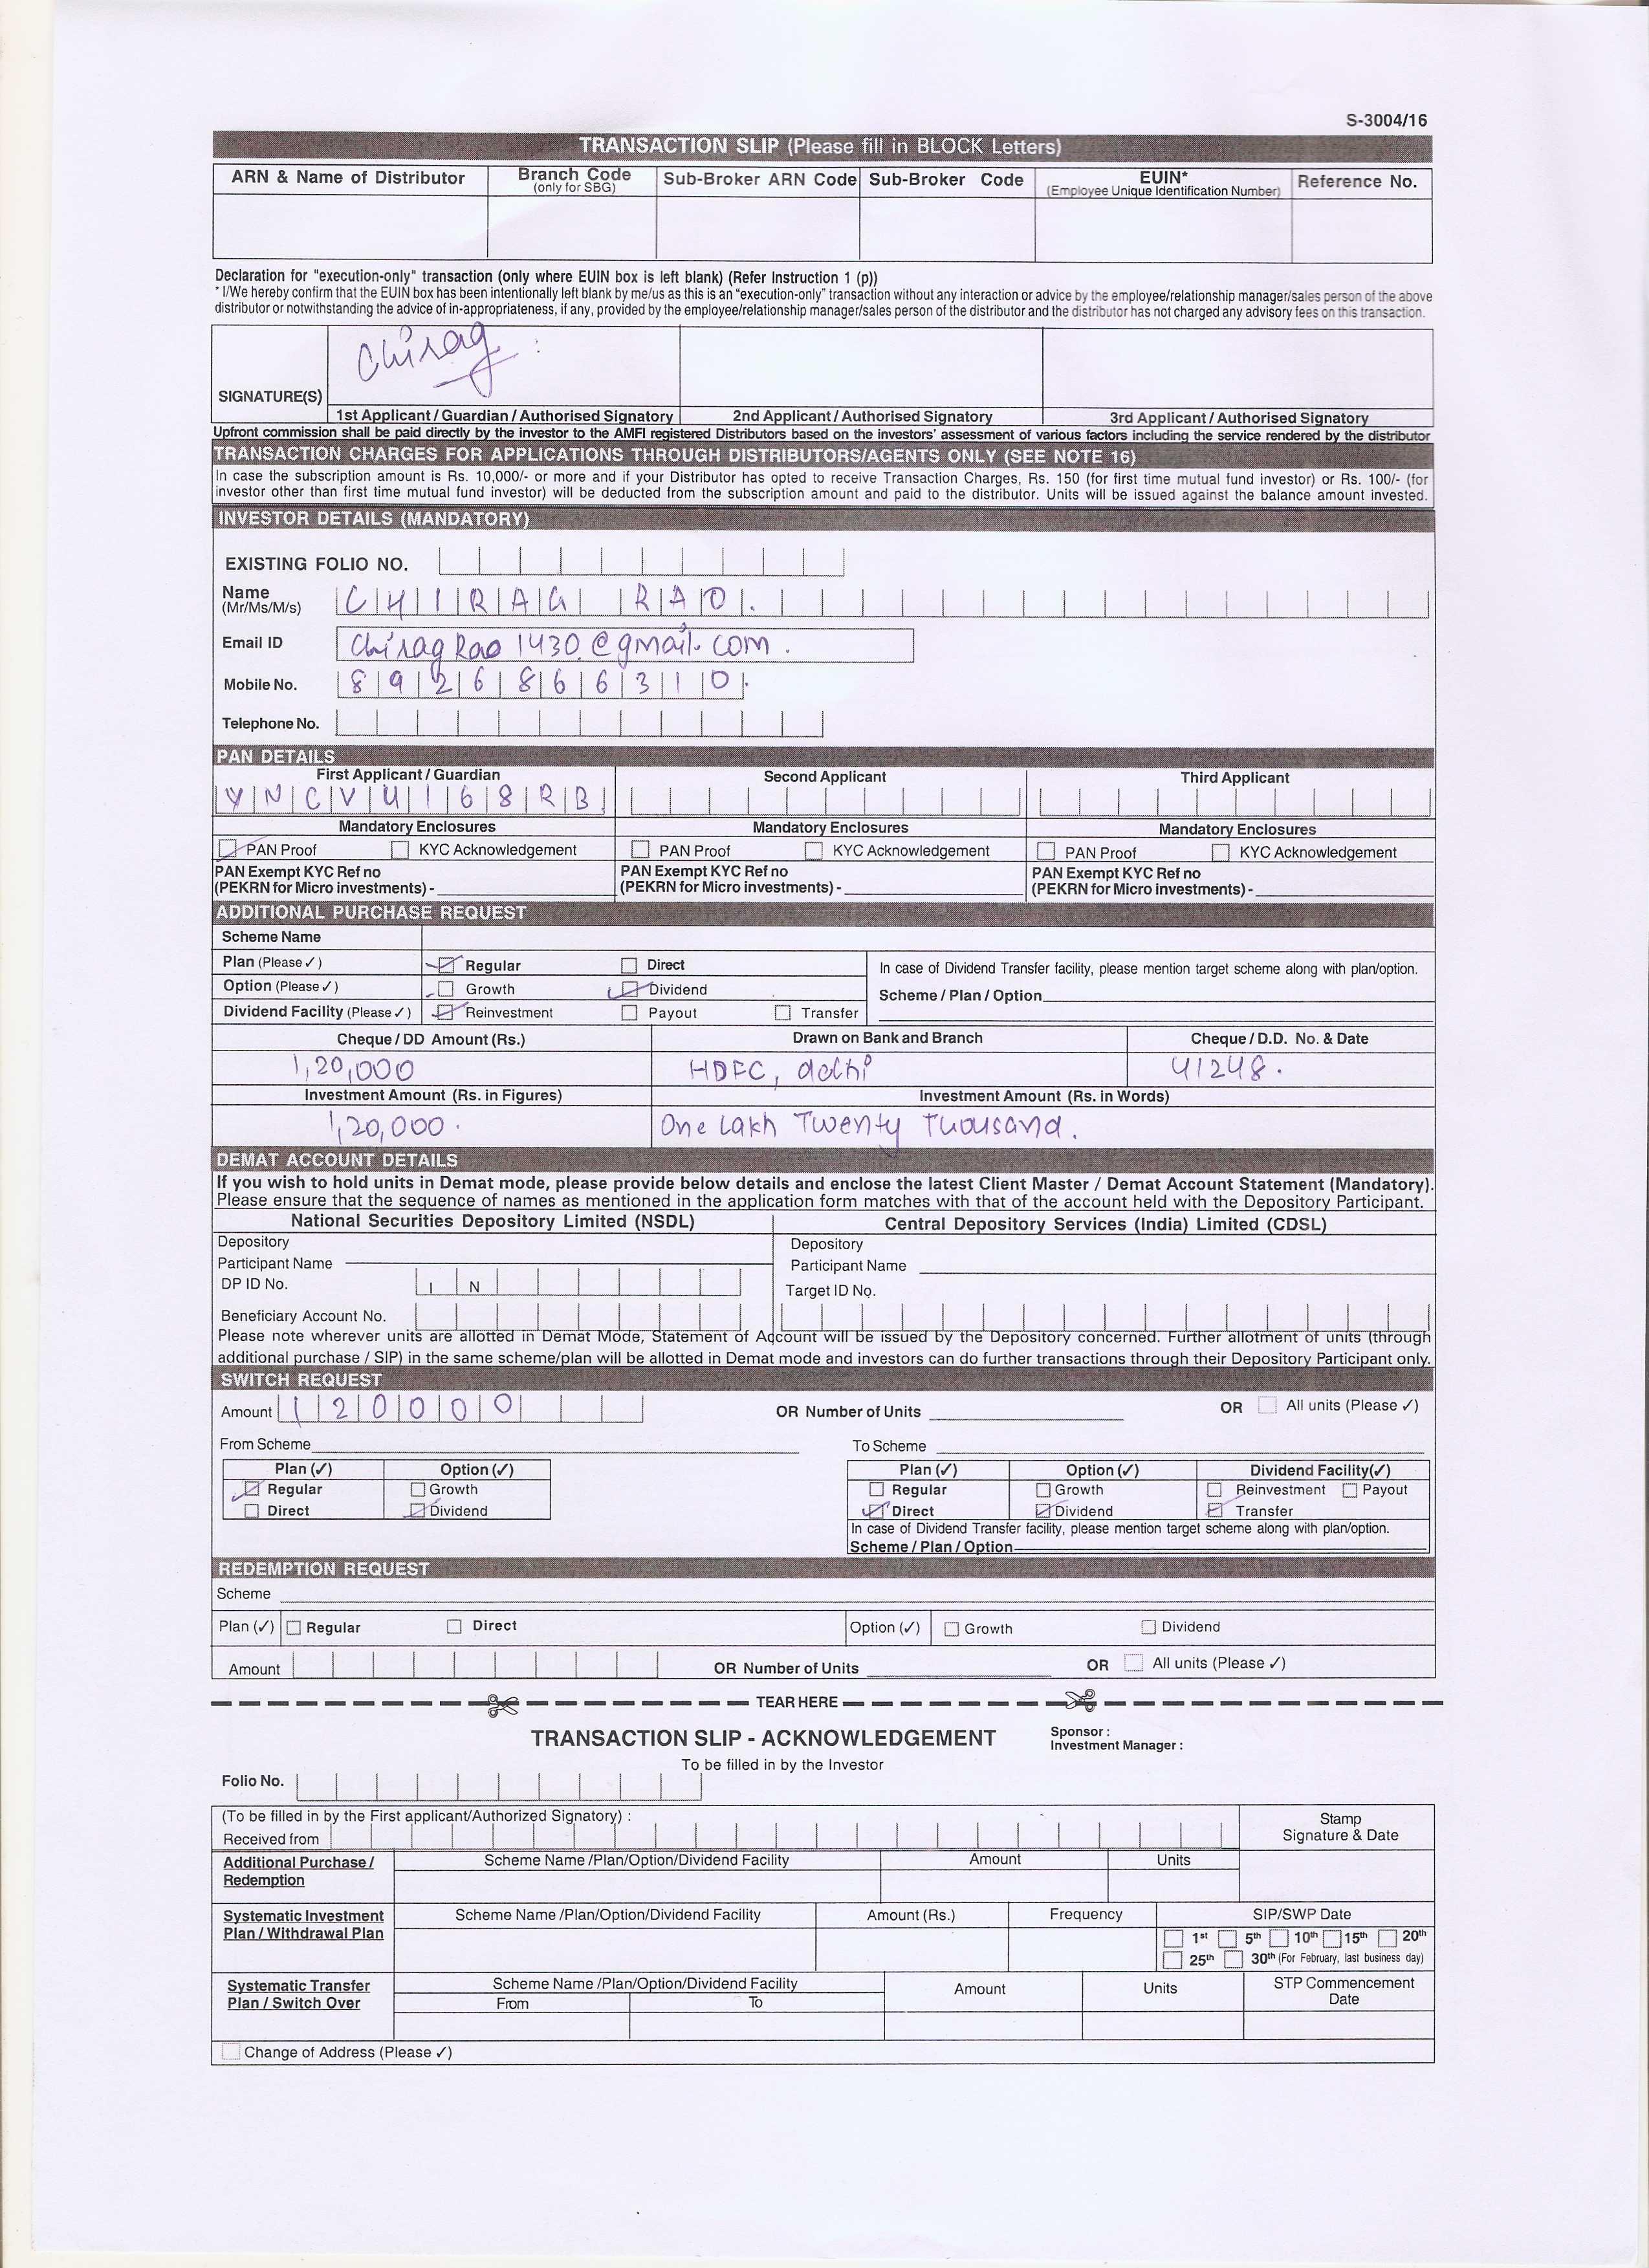 S-3004/16
TRANSACTION SLIP (Please fill in BLOCK Letters)
ARN & Name of Distributor Branch Code (only for SBG) Sub-Broker ARN Code Sub-Broker Code EUIN* (Employee Unique Identification Number) Reference No.
Declaration for "execution-only" transaction (only where EUIN box is left blank) (Refer Instruction 1 (p))
* I/We hereby confirm that the EUIN box has been intentionally left blank by me/us as this is an "execution-only" transaction without any interaction or advice by the employee/relationship manager/sales person of the above
distributor or notwithstanding the advice of in-appropriateness, if any, provided by the employee/relationship manager/sales person of the distributor and the distributor has not charged any advisory fees on this transaction.
Chirag
SIGNATURE(S)
1st Applicant / Guardian / Authorised Signatory 2nd Applicant / Authorised Signatory 3rd Applicant / Authorised Signatory
Upfront commission shall be paid directly by the investor to the AMFI registered Distributors based on the investors' assessment of various factors including the service rendered by the distributor
TRANSACTION CHARGES FOR APPLICATIONS THROUGH DISTRIBUTORS/AGENTS ONLY (SEE NOTE 16)
In case the subscription amount is Rs. 10,000/- or more and if your Distributor has opted to receive Transaction Charges, Rs. 150 (for first time mutual fund investor) or Rs. 100/- (for
investor other than first time mutual fund investor) will be deducted from the subscription amount and paid to the distributor. Units will be issued against the balance amount invested.
INVESTOR DETAILS (MANDATORY)
EXISTING FOLIO NO.
Name (Mr/Ms/M/s) CHIRAG RAO.
Email ID ChiragRao1430@gmail.com.
Mobile No. 8926866310.
Telephone No.
PAN DETAILS
First Applicant / Guardian Second Applicant Third Applicant
YNCVU168RB
Mandatory Enclosures Mandatory Enclosures Mandatory Enclosures
PAN Proof KYC Acknowledgement PAN Proof KYC Acknowledgement PAN Proof KYC Acknowledgement
PAN Exempt KYC Ref no PAN Exempt KYC Ref no PAN Exempt KYC Ref no
(PEKRN for Micro investments) - (PEKRN for Micro investments) - (PEKRN for Micro investments) -
ADDITIONAL PURCHASE REQUEST
Scheme Name
Plan (Please ✓) Regular Direct In case of Dividend Transfer facility, please mention target scheme along with plan/option.
Option (Please ✓) Growth Dividend Scheme / Plan / Option
Dividend Facility (Please ✓) Reinvestment Payout Transfer
Cheque / DD Amount (Rs.) Drawn on Bank and Branch Cheque / D.D. No. & Date
1,20,000 HDFC, delhi 41248.
Investment Amount (Rs. in Figures) Investment Amount (Rs. in Words)
1,20,000. One Lakh Twenty Thousand.
DEMAT ACCOUNT DETAILS
If you wish to hold units in Demat mode, please provide below details and enclose the latest Client Master / Demat Account Statement (Mandatory).
Please ensure that the sequence of names as mentioned in the application form matches with that of the account held with the Depository Participant.
National Securities Depository Limited (NSDL) Central Depository Services (India) Limited (CDSL)
Depository Depository
Participant Name Participant Name
DP ID No. I N Target ID No.
Beneficiary Account No.
Please note wherever units are allotted in Demat Mode, Statement of Account will be issued by the Depository concerned. Further allotment of units (through
additional purchase / SIP) in the same scheme/plan will be allotted in Demat mode and investors can do further transactions through their Depository Participant only.
SWITCH REQUEST
Amount 120000 OR Number of Units OR All units (Please ✓)
From Scheme To Scheme
Plan (✓) Option (✓) Plan (✓) Option (✓) Dividend Facility(✓)
Regular Growth Regular Growth Reinvestment Payout
Direct Dividend Direct Dividend Transfer
In case of Dividend Transfer facility, please mention target scheme along with plan/option.
Scheme / Plan / Option
REDEMPTION REQUEST
Scheme
Plan (✓) Regular Direct Option (✓) Growth Dividend
Amount OR Number of Units OR All units (Please ✓)
TEAR HERE
TRANSACTION SLIP - ACKNOWLEDGEMENT Sponsor :
Investment Manager :
To be filled in by the Investor
Folio No.
(To be filled in by the First applicant/Authorized Signatory) : Stamp
Received from Signature & Date
Additional Purchase / Redemption Scheme Name /Plan/Option/Dividend Facility Amount Units
Systematic Investment Plan / Withdrawal Plan Scheme Name /Plan/Option/Dividend Facility Amount (Rs.) Frequency SIP/SWP Date
1st 5th 10th 15th 20th
25th 30th (For February, last business day)
Systematic Transfer Plan / Switch Over Scheme Name /Plan/Option/Dividend Facility Amount Units STP Commencement Date
From To
Change of Address (Please ✓)